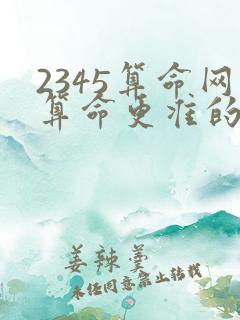 2345算命网
算命更准的
姜辣羹
未任同意禁止转载